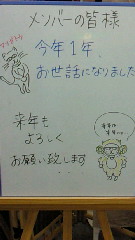 メンバーの皆様
今年1年、
お世話になりました
来年も
よろしく
お願い致します